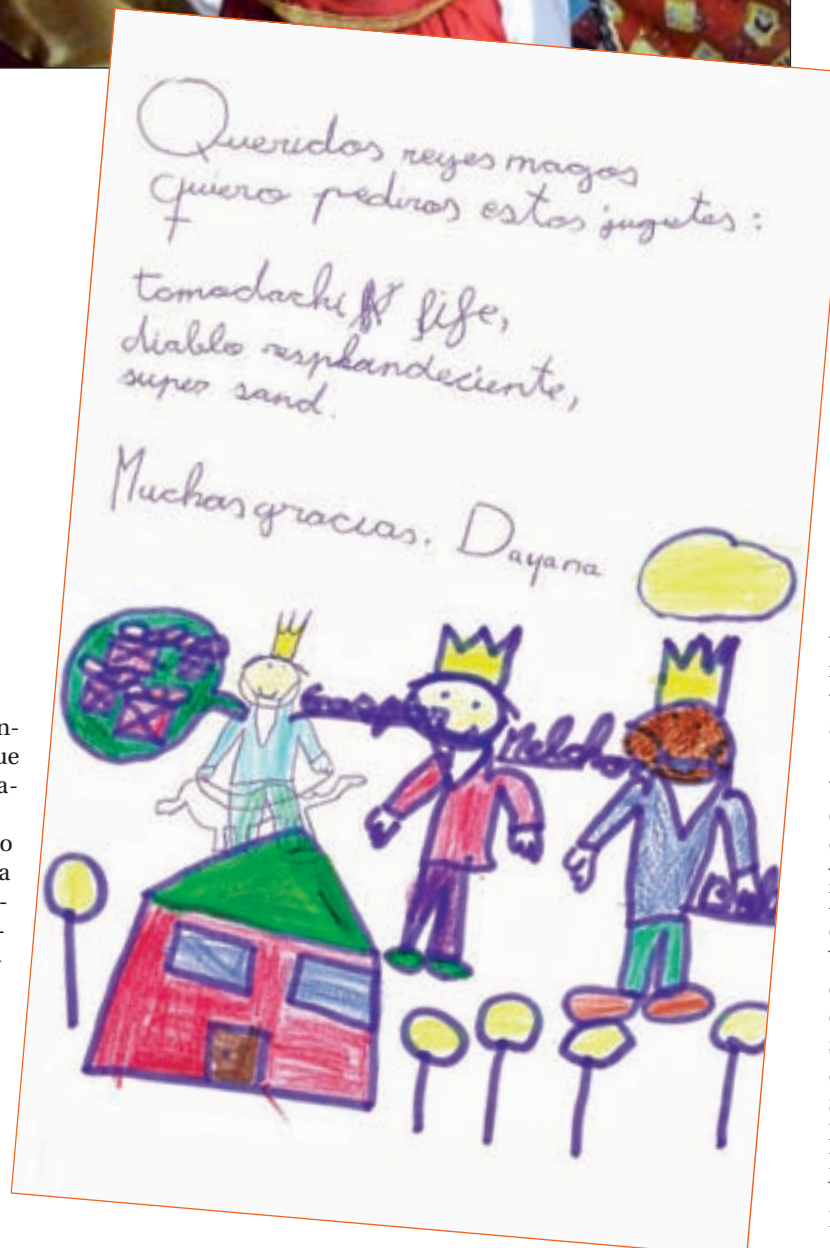 Queridos reyes magos
quiero pediros estos jugetes:
tomodachi fife,
diablo resplandeciente,
super sand.
Muchas gracias. Dayana
Gaspar
Melchor
n-
ue
a-
o
a
-
-